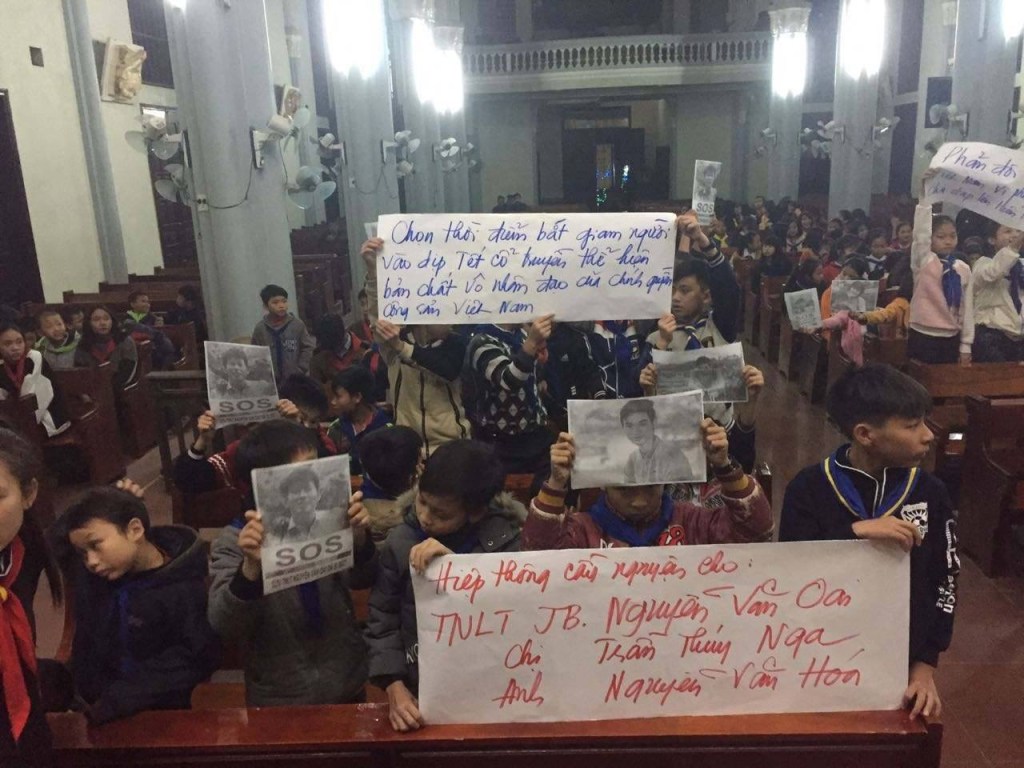 Chọn thời điểm bắt giam người
vào dịp Tết cổ truyền thể hiện
bản chất vô nhân đạo của chính quyền
cộng sản Việt Nam
Phản đối
SOS
SOS
SOS
Hiệp thông cầu nguyện cho:
TNLT JB. Nguyễn Văn Oai
Chị Trần Thúy Nga
Anh Nguyễn Văn Hóa